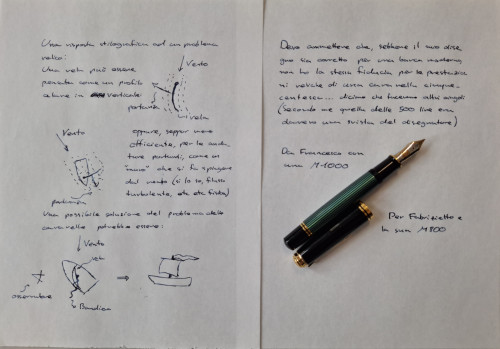 Una risposta stilografica ad un problema
velico:
Una vela può essere
pensata come un profilo
alare in verticale
Vento
portanza
vela
Vento
portanza
oppure, seppur meno
efficiente, per le anda
ture portanti, come un
"muro" che si fa spingere
dal vento (si lo so, flusso
turbolento, etc etc fisica)
Una possibile soluzione del problema delle
caravelle potrebbe essere:
Vento
vela
osservatore
Bandiera
Devo ammettere che, sebbene il suo dise
gno sia corretto per una barca moderna,
non ho la stessa fiducia per le prestazio
ni veliche di una caravella cinque
centesca... diciamo che facevano altri angoli
(secondo me quella delle 500 lire era
davvero una svista del disegnatore)
Da Francesco con
una M1000
Per Fabrizietto e
la sua M800